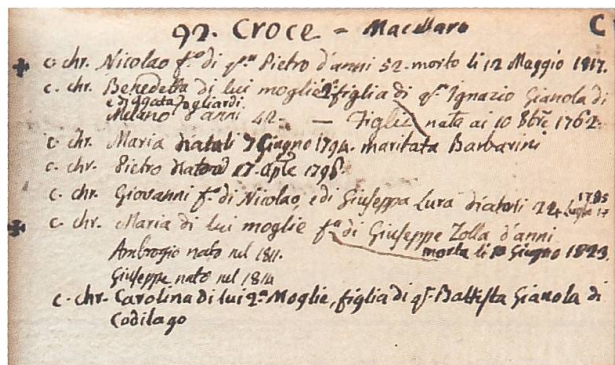 92. Croce = Macellaro C
✠ c. chr. Nicolao f.º di q.m Pietro d'anni 52. morto li 12 Maggio 1817.
c. chr. Benedetta di lui moglie 2ª figlia di q.m Ignazio Gianola di
e di Agata Pogliardi.
Milano d'anni 42. — Figlie nata ai 10 8bre 1762.
c. chr. Maria di età li 7 Giugno 1794. maritata Barbarini
c. chr. Pietro nato 17 Aple 1796
c. chr. Giovanni f.º di Nicolao, e di Giuseppa Lura di età li 24 Luglio 1785
✠ c. chr. Maria di lui moglie f.ª di Giuseppe Zolla d'anni
Ambrogio nato nel 1811. morta li Giugno 1823.
Giuseppe nato nel 1814
c. chr. Carolina di lui 2.ª Moglie, figlia di q.m Battista Gianola di
Codilago